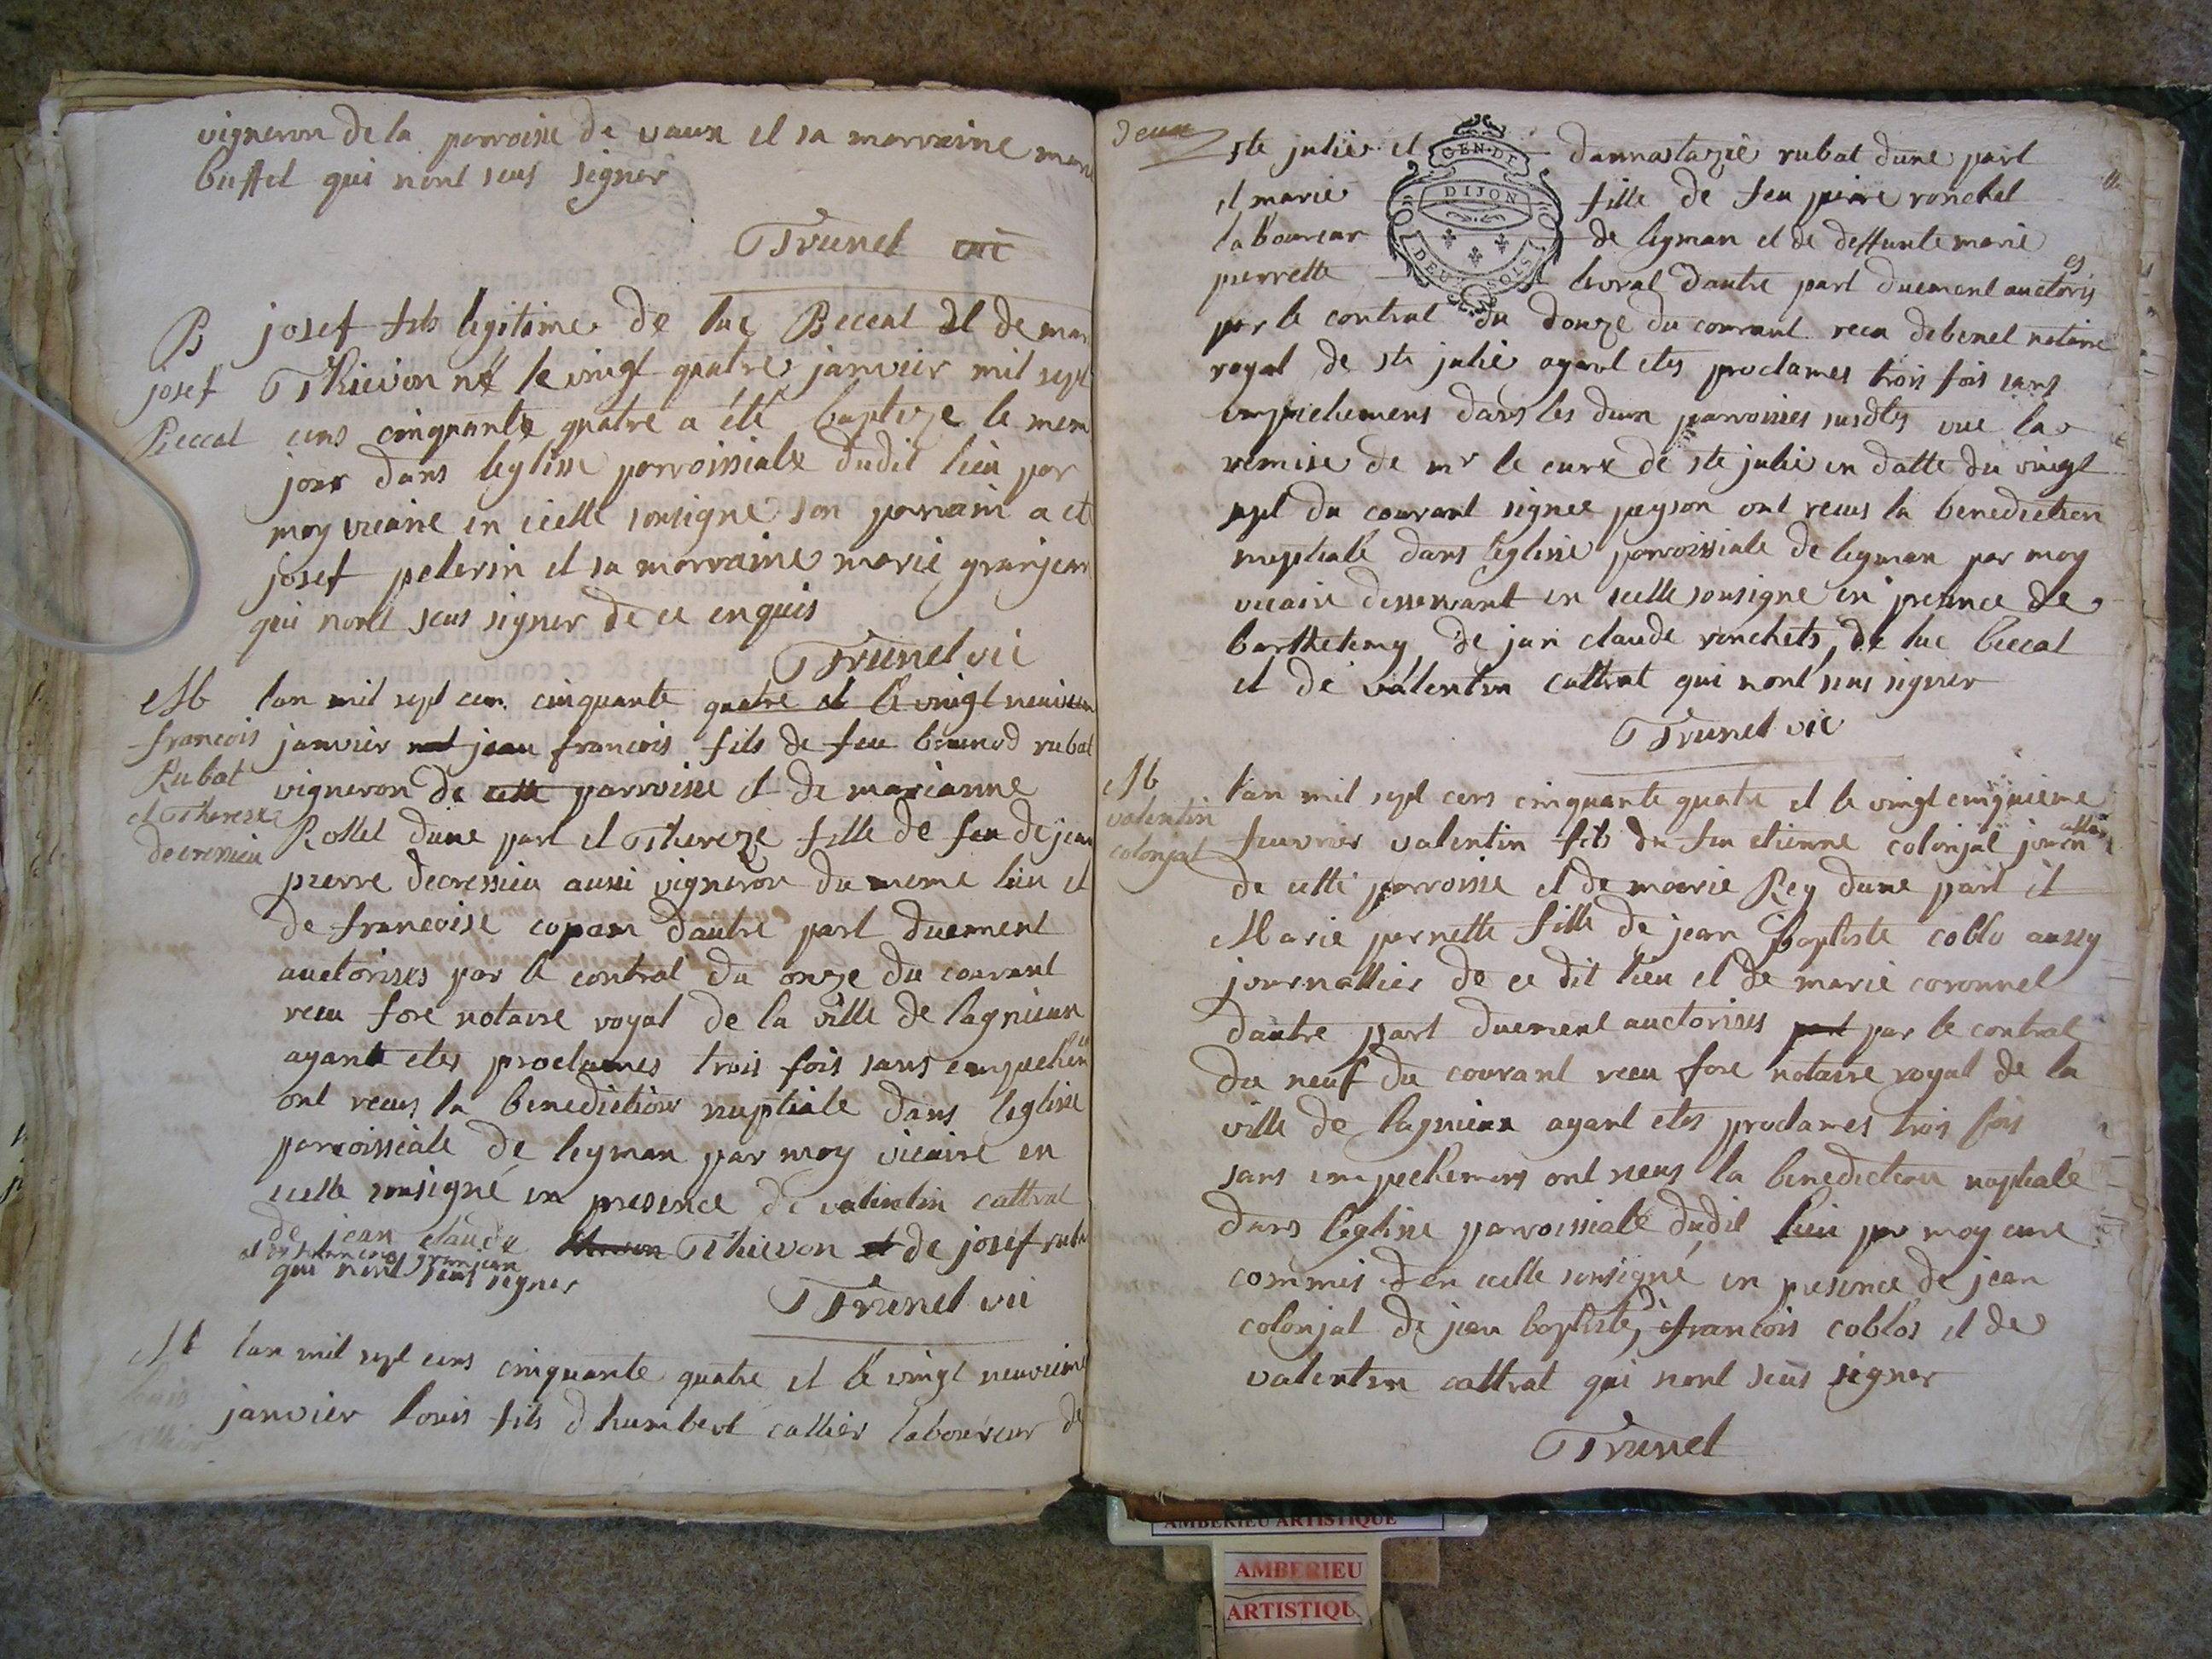 vigneron de la parroisse de vaux et sa marraine marie
buffet qui nont seus signer
Trunet vic
B josef fils legitime de luc Beccat et de marie
josef Thievon né le vingt quatre janvier mil sept
Beccat cens cinquante quatre a été baptize le meme
jour dans leglise parroissiale dudit lieu par
moy vicaire en icelle sousigne son parrain a été
josef pelerin et sa marraine marie granjean
qui nont seus signer de ce enquis
Trunet vic
M lan mil sept cens cinquante quatre et le vingt neuvieme
francois janvier jean francois fils de feu rubat
Rubat vigneron de cette parroisse et de marianne
et Therese Rosset dune part et Thereze fille de feu de jean
decressieu
pierre decressieu aussi vigneron du meme lieu et
de francoise copan dautre part duement
auctorises par le contrat du onze du courant
receu fore notaire royal de la ville de lagnieux
ayant etes proclames trois fois sans empechem
ont receus la benediction nuptiale dans leglise
parroissiale de leyman par moy vicaire en
icelle sousigné en presence de valentin cattrat
de jean claude Thievon et de josef rubat
et de francois granjean
qui nont seus signer
Trunet vic
M lan mil sept cens cinquante quatre et le vingt neuvieme
louis janvier louis fils dhumbert callier laboureur de
callier
deux
ste julie et dannastazie rubat dune part
GEN·DE
DIJON
DEUX SOLS
et marie fille de feu pierre ronchet
laboureur de leyman et de deffunte marie
pierrette dautre part duement auctorises
par le contrat du douze du courant receu debenet notaire
royal de ste julie ayant etes proclames trois fois sans
empechemens dans les deux parroisses susdtes vue la
remise de mr le curé de ste julie en datte du vingt
sept du courant signee peyson ont receus la benediction
nuptiale dans leglise parroissiale de leyman par moy
vicaire desservant en icelle sousigne en presence de
barthelemy, de jan claude ronchets, de luc beccat
et de valentin cattrat qui nont seus signer
Trunet vic
M lan mil sept cens cinquante quatre et le vingt cinquieme
valentin feuvrier valentin fils de feu etienne colonjat journallier
colonjat de cette parroisse et de marie Rey dune part et
Marie pernette fille de jean baptiste coblo aussy
journallier de ce dit lieu et de marie coronnel
dautre part duement auctorises part par le contrat
du neuf du courant receu fore notaire royal de la
ville de lagnieux ayant etes proclames trois fois
sans empechemens ont receus la benediction nuptiale
dans leglise parroissiale dudit lieu par moy cure
commis den icelle sousigné en presence de jean
colonjat de jean baptiste, de francois coblos et de
valentin cattrat qui nont seus signer
Trunet
AMBERIEU ARTISTIQUE
AMBERIEU
ARTISTIQU